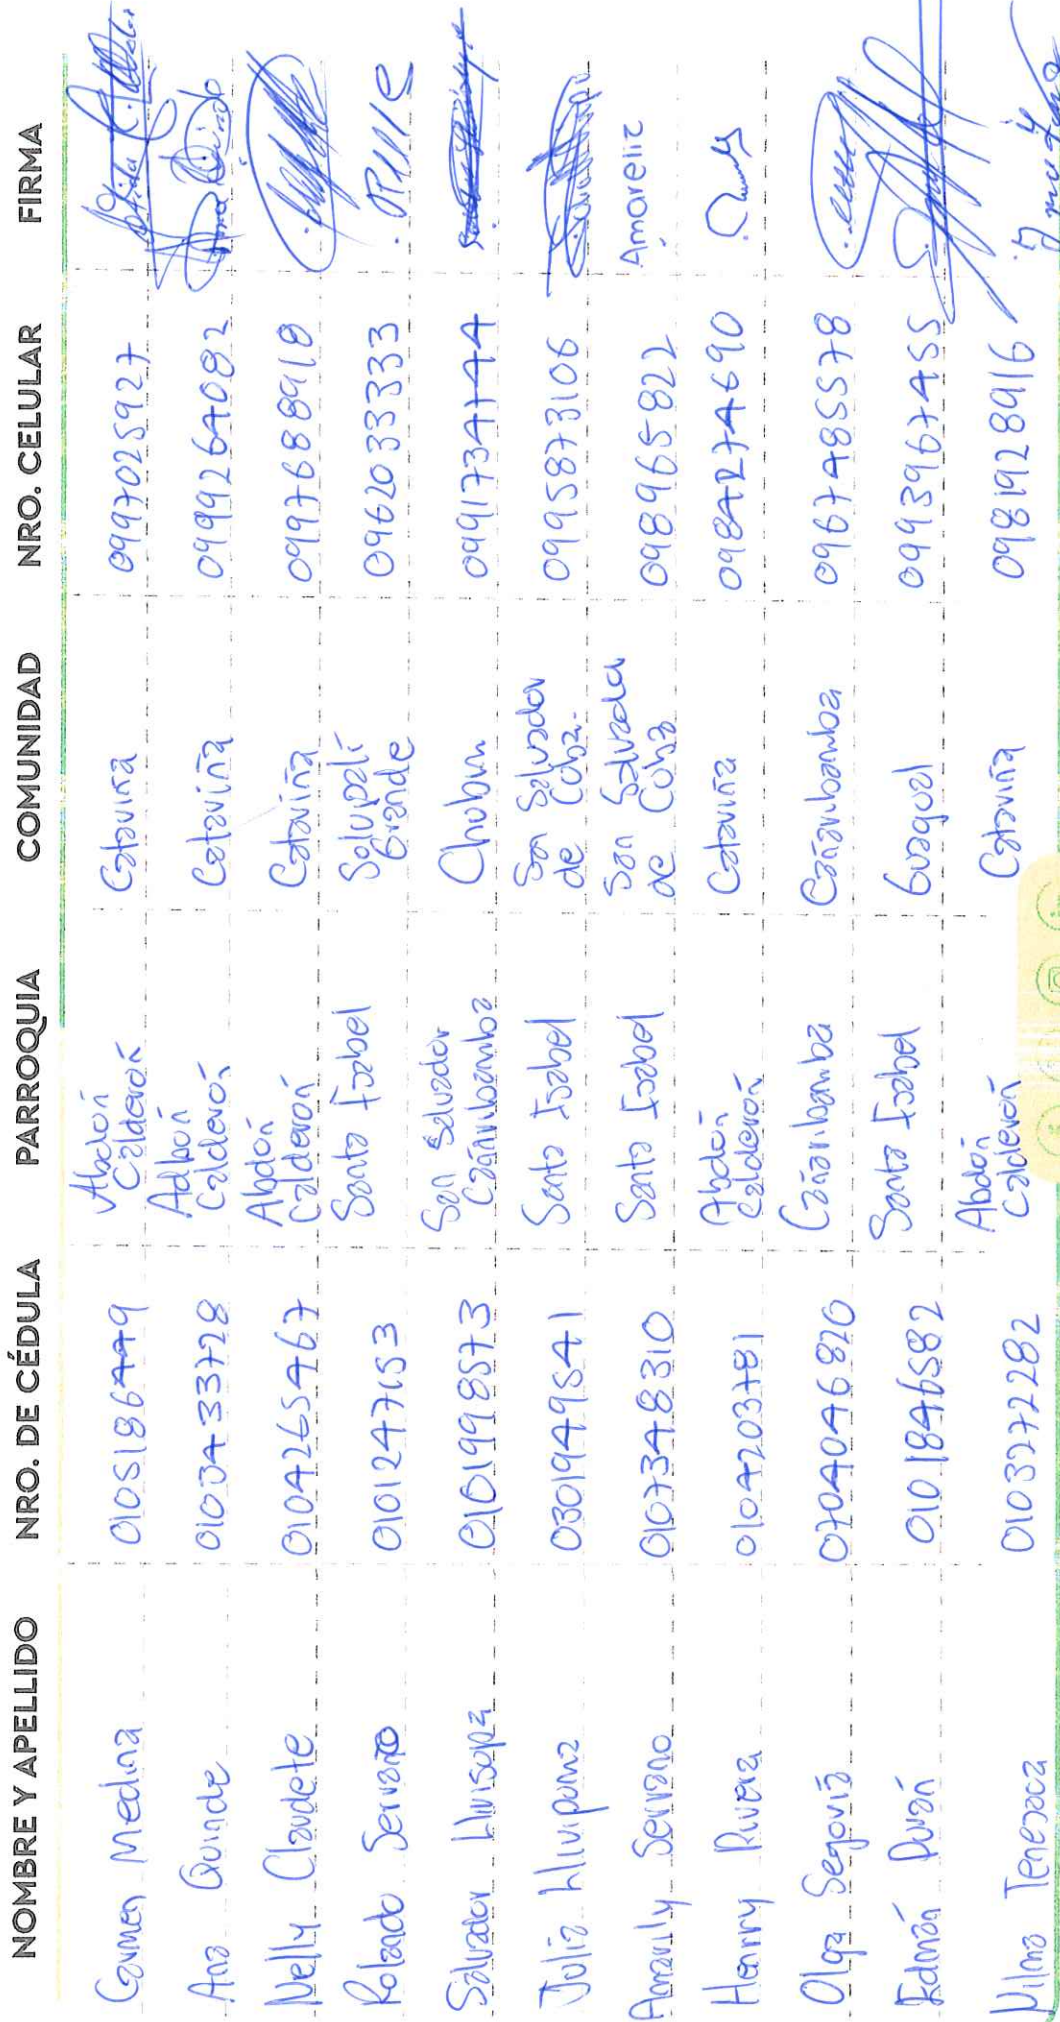 NOMBRE Y APELLIDO NRO. DE CÉDULA PARROQUIA COMUNIDAD NRO. CELULAR FIRMA
Carmen Medina 0105186449 Abdón Calderón Cataviña 0997025927
Ana Quinde 0103433728 Adbón Calderón Cataviña 0999264082
Nelly Claudete 0104265467 Abdón Calderón Cataviña 0997688918
Rolando Serrano 0101247153 Santa Isabel Sulupali Grande 0962033333
Salvador Llivisopa 0101998573 San Salvador Cañaribamba Chubun 0991734744
Julia Llivipuma 0301949541 Santa Isabel San Salvador de Coba 0995873106
Amarily Serrano 0107348310 Santa Isabel San Salvador de Coba 0989965822 Amareliz
Henrry Rivera 0104203781 Abdón Calderón Cataviña 0984274690
Olga Segovia 0704046820 Cañaribamba Cañaribamba 0967485578
Edmán Durán 0101846582 Santa Isabel Guagual 0993967455
Vilma Tenesaca 0103272282 Abdón Calderón Cataviña 0981928916